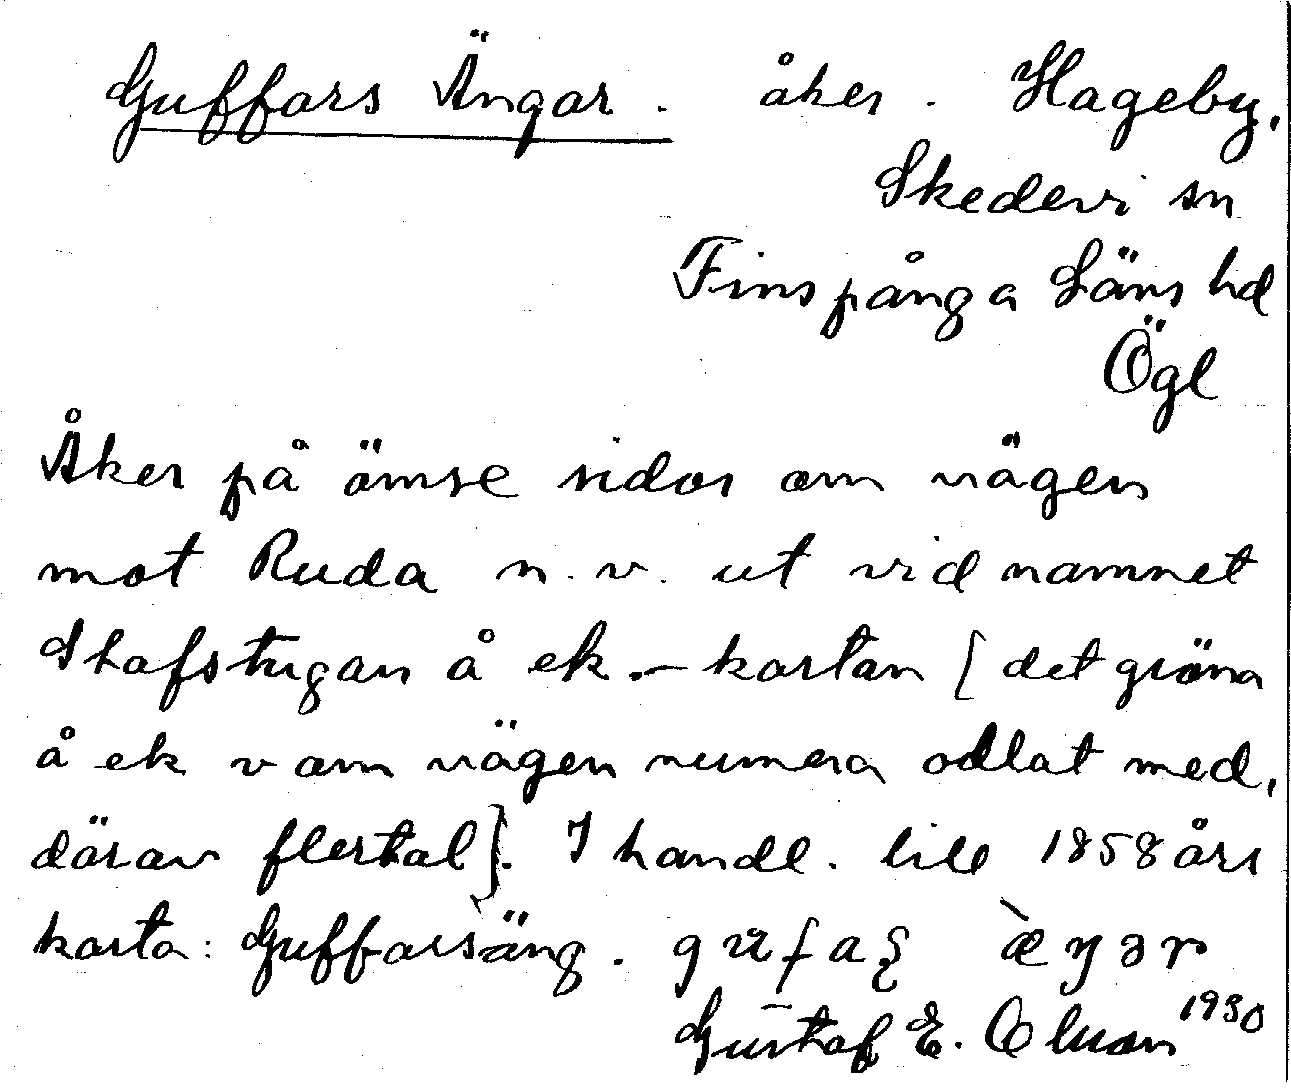 Guffars Ängar. åker. Hageby,
Skedevi sn
Finspånga Läns hd
Ögl
Åker på ömse sidor om vägen
mot Ruda n.v. ut vid namnet
Skafstugan å ek.-kartan [det gröna
å ek v om vägen numera odlat med,
därav flertal]. I handl. till 1858 års
karta: Guffarsäng.
Gustaf E. Olson 1930